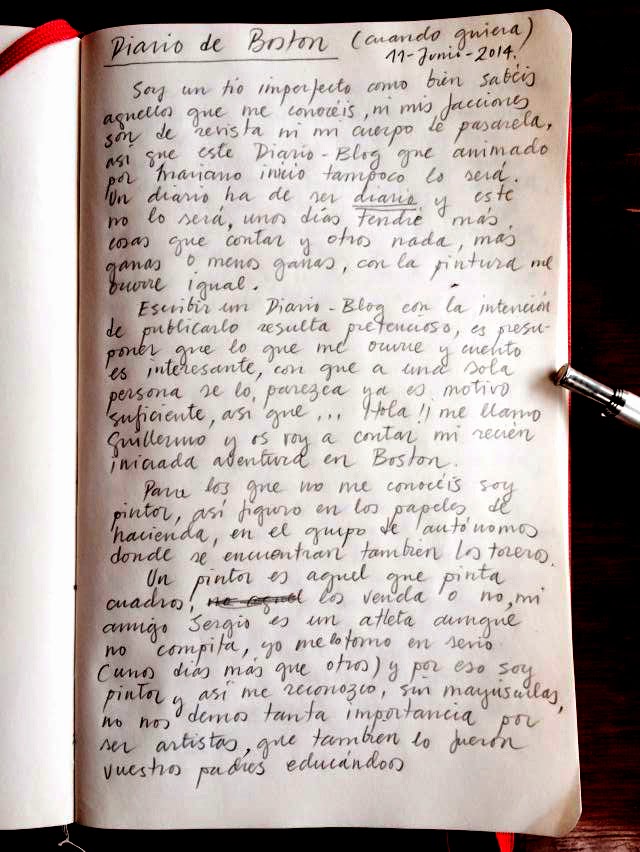 Diario de Boston (cuando quiera)
11-Junio-2014.
Soy un tío imperfecto como bien sabéis
aquellos que me conocéis, ni mis facciones
son de revista ni mi cuerpo de pasarela,
así que este Diario-Blog que animado
por Mariano inicio tampoco lo será.
Un diario ha de ser diario y este
no lo será, unos días tendré más
cosas que contar y otros nada, más
ganas o menos ganas, con la pintura me
ocurre igual.
Escribir un Diario-Blog con la intención
de publicarlo resulta pretencioso, es presu-
poner que lo que me ocurre y cuento
es interesante, con que a una sola
persona se lo parezca ya es motivo
suficiente, así que... Hola!! me llamo
Guillermo y os voy a contar mi recién
iniciada aventura en Boston.
Para los que no me conocéis soy
pintor, así figuro en los papeles de
hacienda, en el grupo de autónomos
donde se encuentran también los toreros.
Un pintor es aquel que pinta
cuadros, los venda o no, mi
amigo Sergio es un atleta aunque
no compita, yo me lo tomo en serio
(unos días más que otros) y por eso soy
pintor y así me reconozco, sin mayúsculas,
no nos demos tanta importancia por
ser artistas, que también lo fueron
vuestros padres educándoos